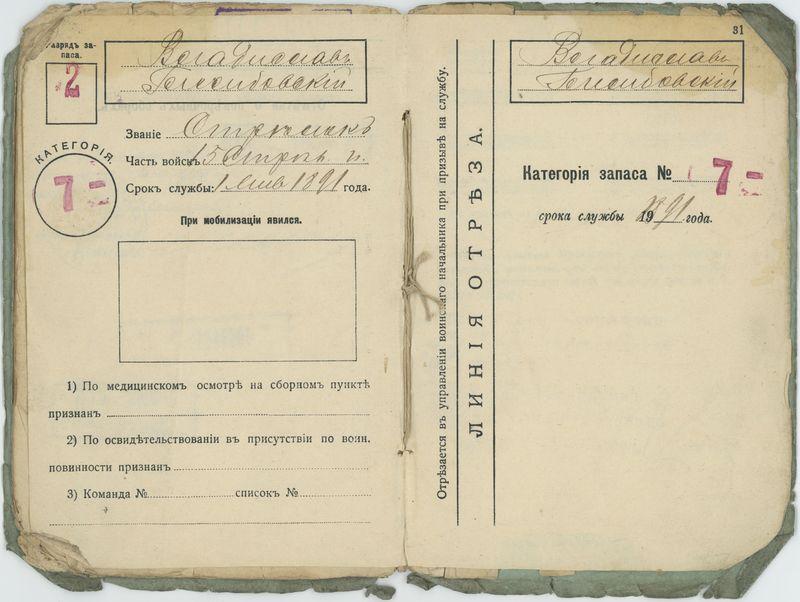 Разрядъ за-
паса.
2
Владиславъ
КАТЕГОРІЯ.
7
Званіе
Часть войскъ 15
Срокъ службы: 1 1891 года.
При мобилизаціи явился.
1) По медицинскомъ осмотрѣ на сборномъ пунктѣ
признанъ
2) По освидѣтельствованіи въ присутствіи по воин.
повинности признанъ
3) Команда № списокъ №
Отрѣзается въ управленіи воинскаго начальника при призывѣ на службу.
ЛИНІЯ ОТРѢЗА.
31
Владиславъ
Категорія запаса № 7
срока службы 1891 года.